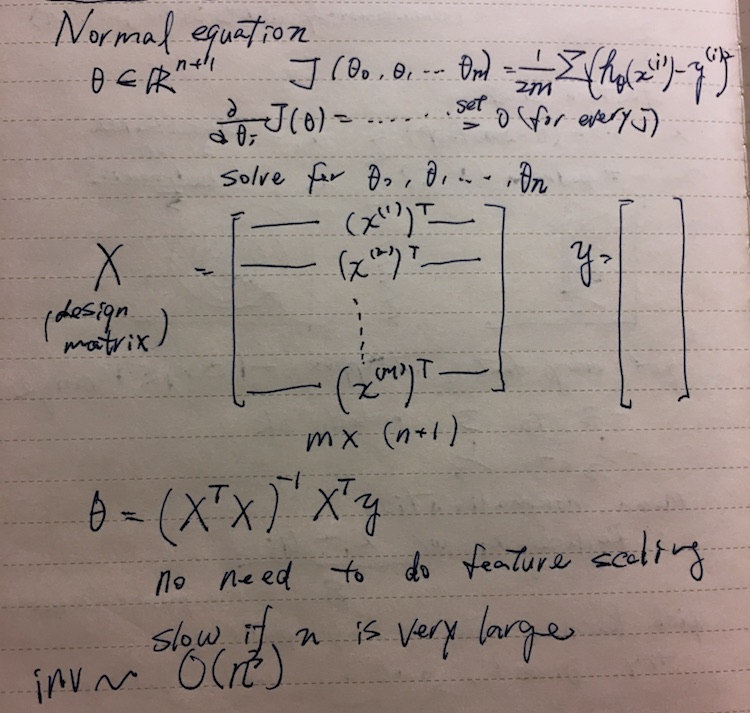 Normal equation
θ ∈ ℝⁿ⁺¹ J(θ₀, θ₁ ... θₘ) = 1/2m Σ(h_θ(x⁽ⁱ⁾) - y⁽ⁱ⁾)²
∂/∂θⱼ J(θ) = ....... set = 0 (for every J)
solve for θ₀, θ₁ ... , θn
X = [ — (x⁽¹⁾)ᵀ — y = [ ]
— (x⁽²⁾)ᵀ —
(design
matrix)
— (x⁽ᵐ⁾)ᵀ — ]
m x (n+1)
θ = (XᵀX)⁻¹ Xᵀy
no need to do feature scaling
slow if n is very large
inv ~ O(n³)